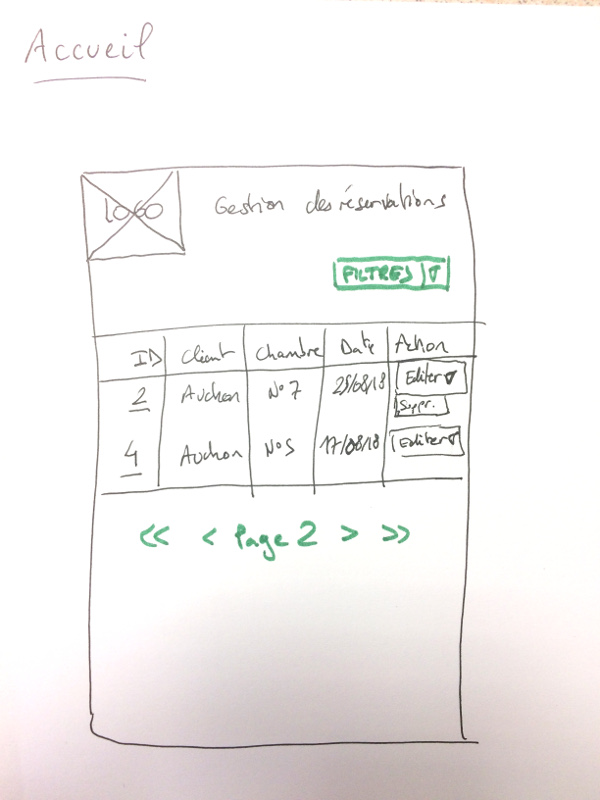 Accueil
LOGO
Gestion des réservations
FILTRES
ID Client Chambre Date Action
2 Auchan N°7 25/08/18 Editer
Suppr.
4 Auchan N°5 17/08/18 Editer
<< < Page 2 > >>